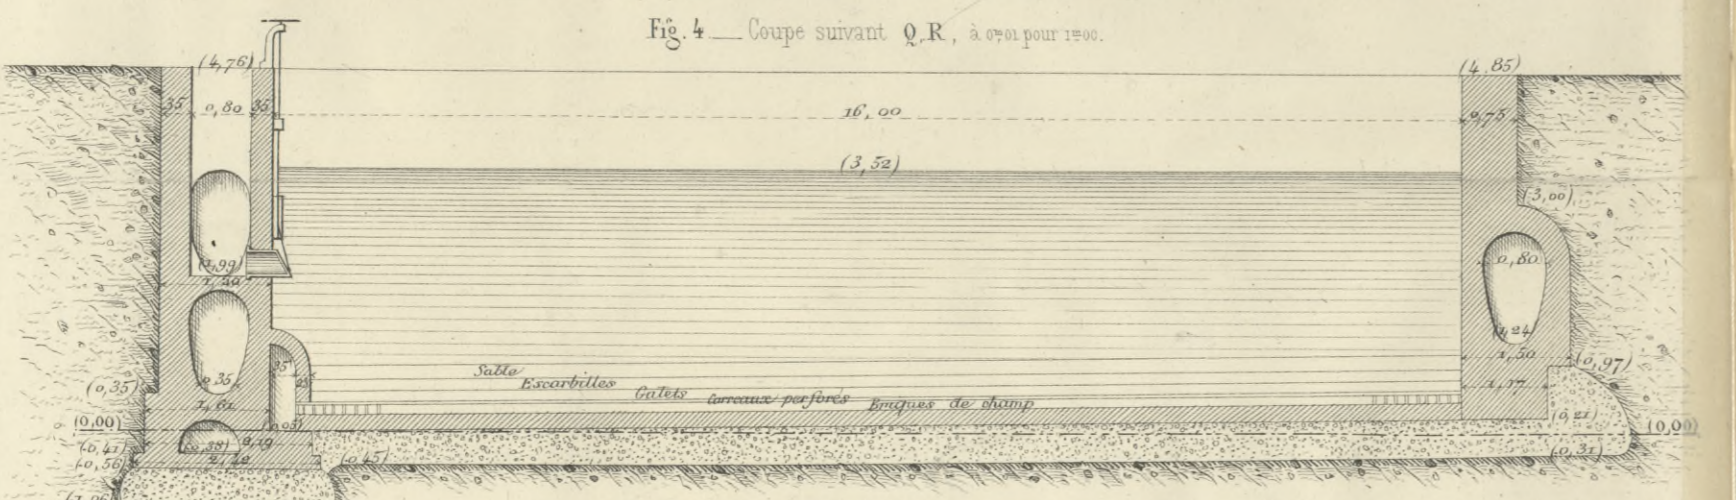 Fig. 4 — Coupe suivant Q.R, à 0m,01 pour 1m00.
(4,76)
(4,85)
35 0,80 35
16,00
0,75
(3,52)
(3,00)
(1,99)
0,80
1,24
(0,35)
0,35
35
1,50
(0,97)
1,17
Sable
Escarbilles
Galets
Carreaux perforés
Briques de champ
1,61
(0,00)
(0,21)
(0,00)
(-0,41)
(-0,38)
(-0,56)
(-0,45)
(-0,31)